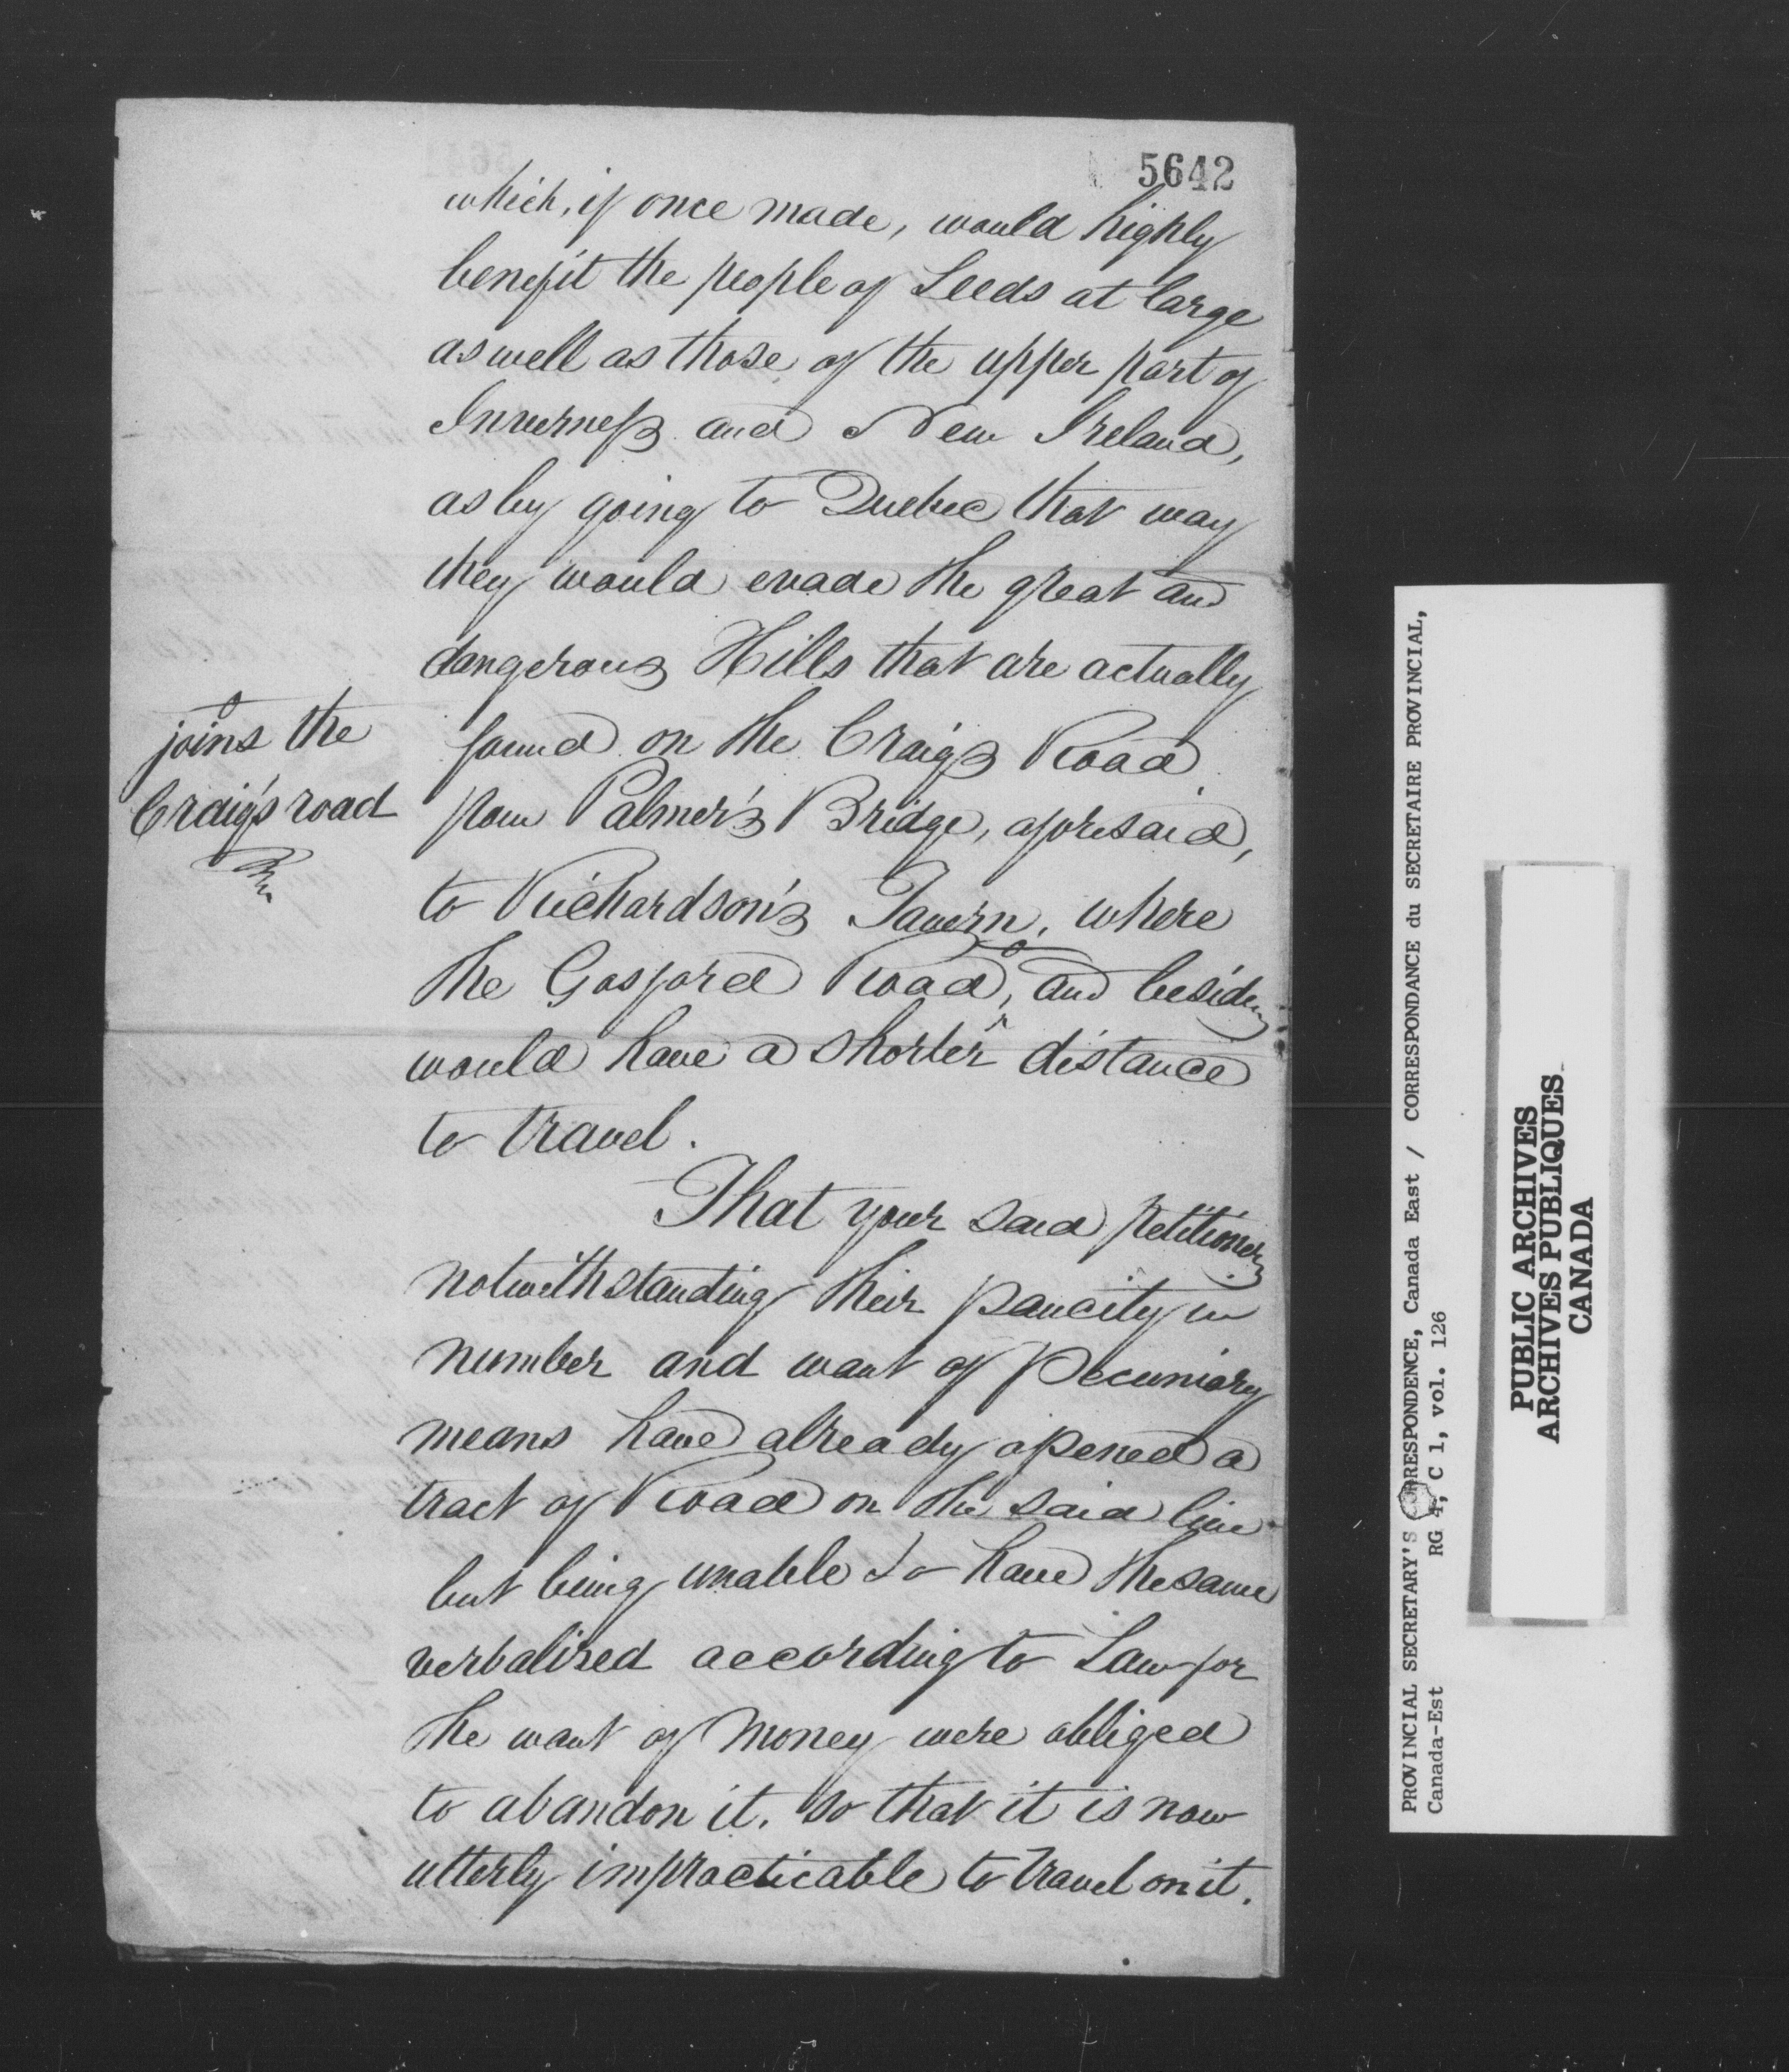 5642
which, if once made, would highly
benefit the people of Leeds at large
as well as those of the upper part of
Inverness and New Ireland,
as by going to Quebec that way
they would evade the great and
dangerous Hills that are actually
found on the Craig's Road
from Palmer's Bridge, aforesaid,
to Richardson's Tavern, where
the Gosford Road, and besides
would have a shorter distance
to travel.
joins the
Craig's road
That your said petitioners
notwithstanding their paucity in
number and want of pecuniary
means have already opened a
tract of Road on the said line
but being unable to have the same
verbalised according to Law for
the want of money were obliged
to abandon it, so that it is now
utterly impracticable to travel on it.
PROVINCIAL SECRETARY'S CORRESPONDENCE, Canada East / CORRESPONDANCE du SECRETAIRE PROVINCIAL,
Canada-Est RG 4, C 1, vol. 126
PUBLIC ARCHIVES
ARCHIVES PUBLIQUES
CANADA